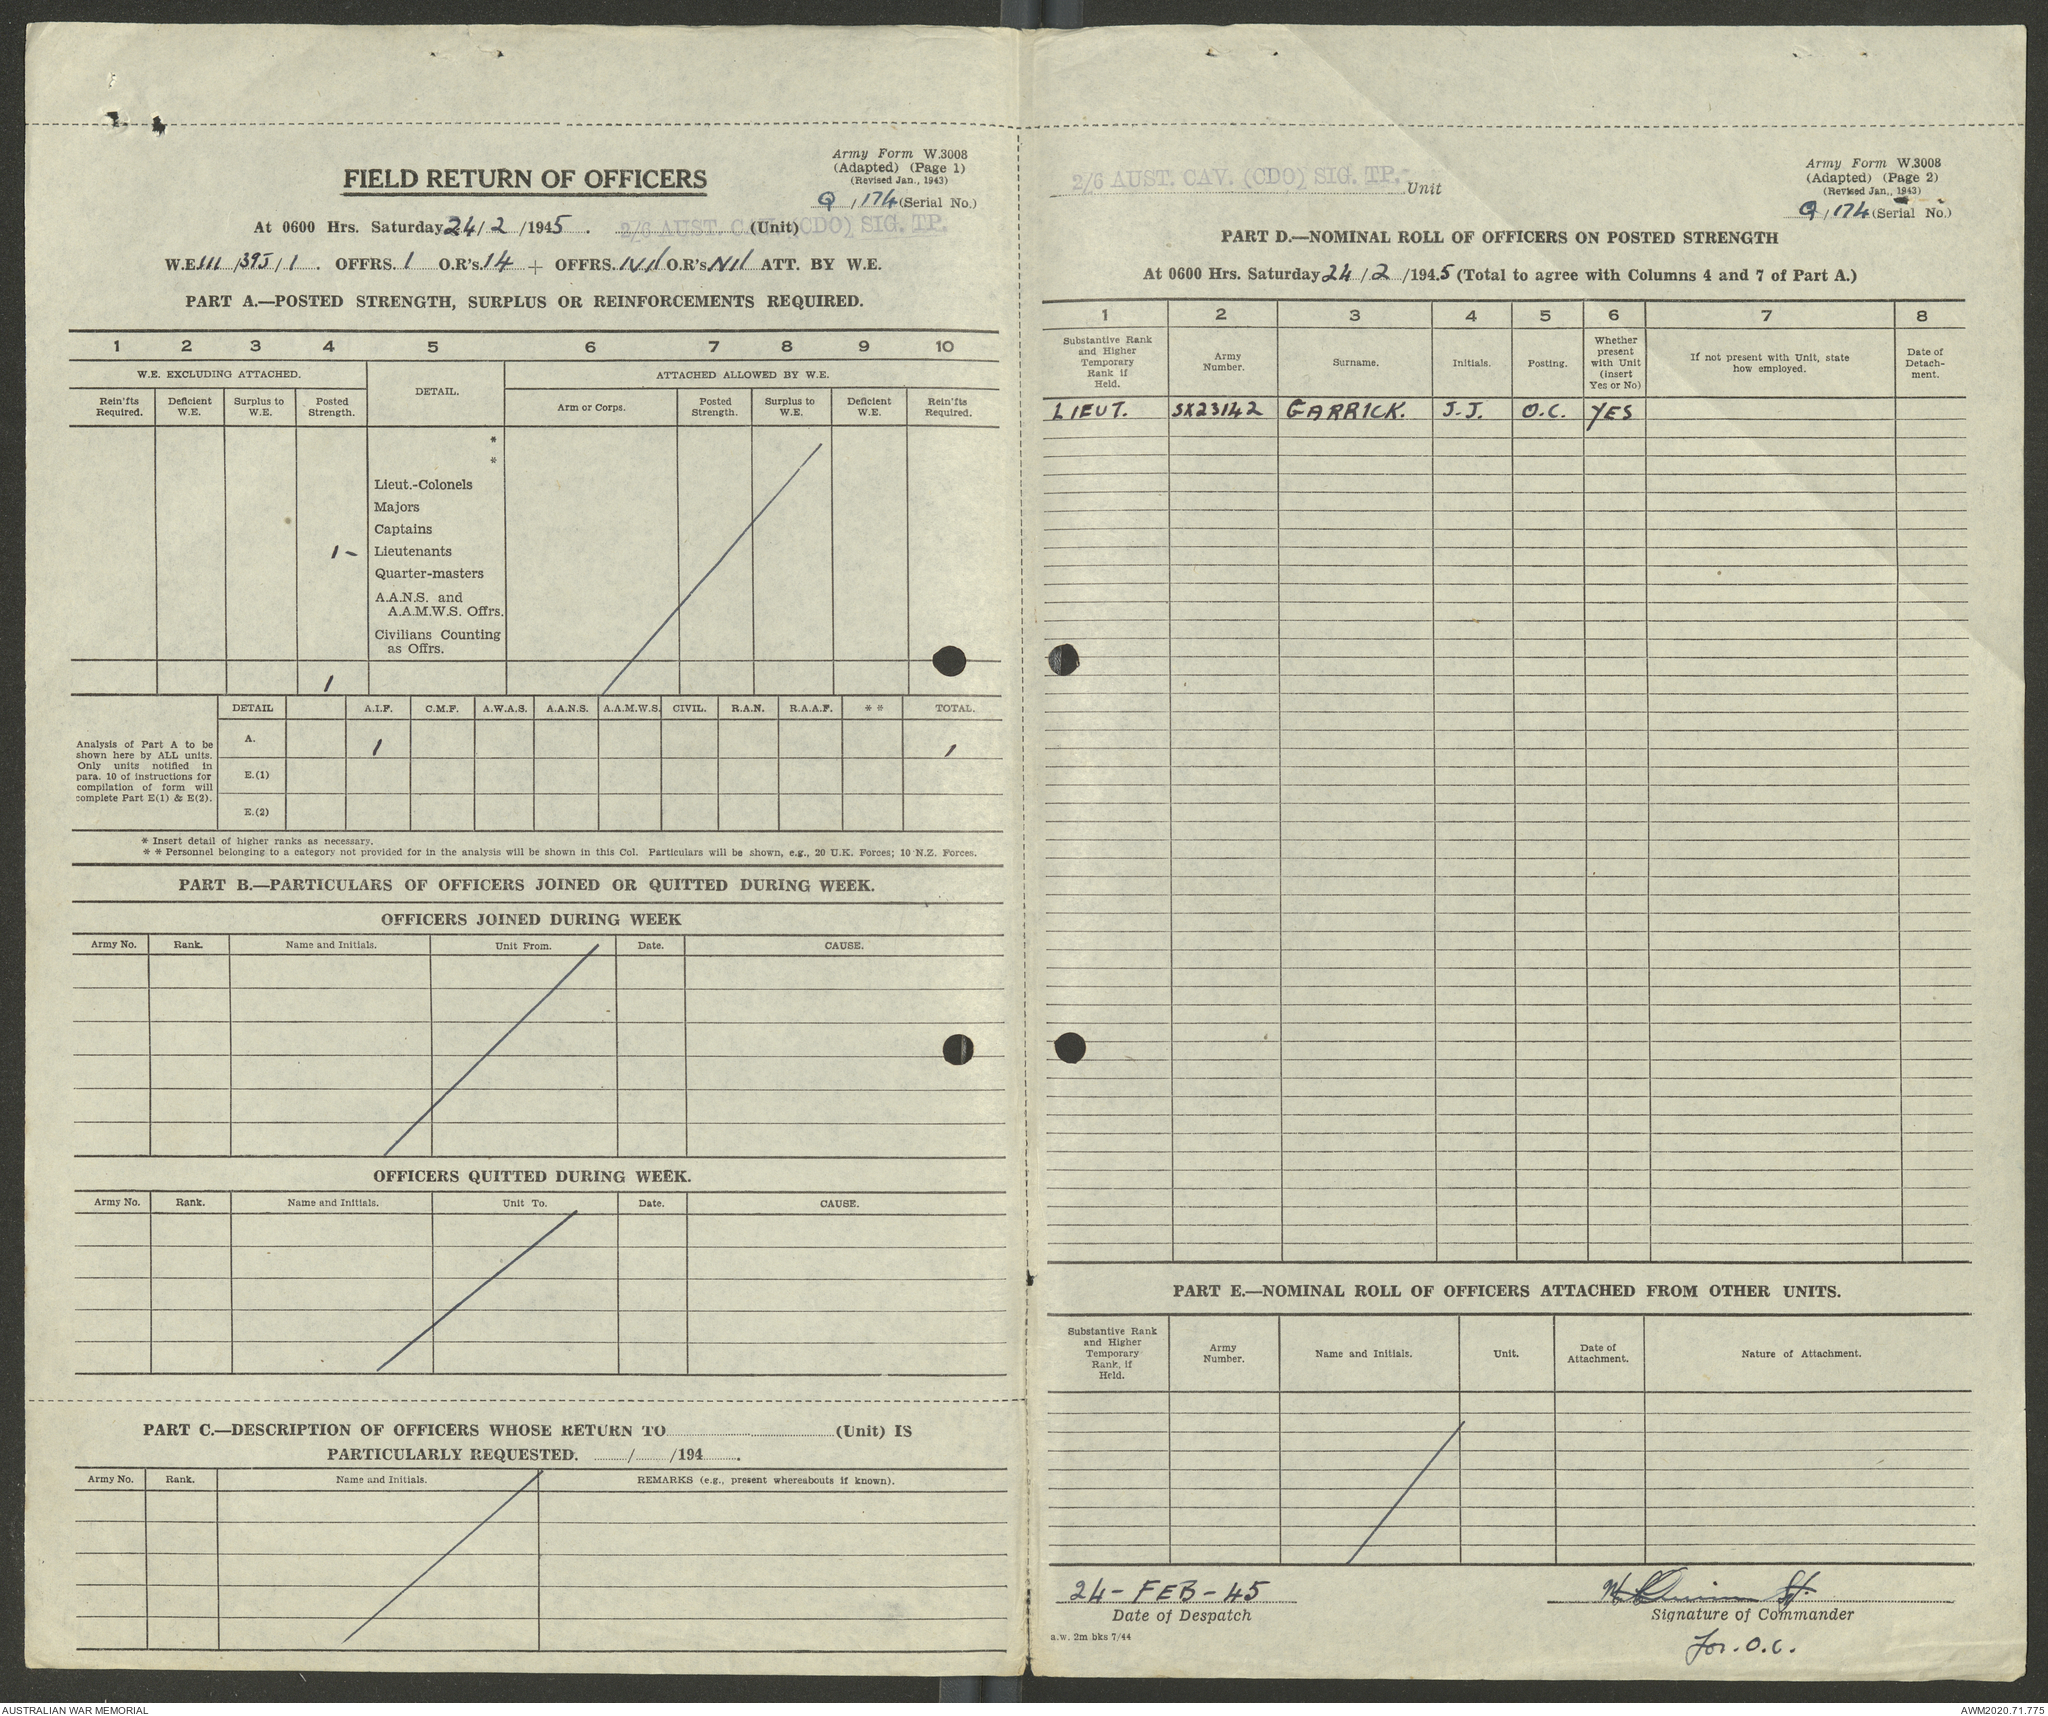 Army Form W.3008
(Adapted) (Page 1)
(Revised Jan., 1943)
Q, 174 (Serial No.)
FIELD RETURN OF OFFICERS
At 0600 Hrs. Saturday 24/2/1945. 2/6 AUST. CAV. (CDO) SIG. TP. (Unit)
W.E. III/39J/1. OFFRS. 1 O.R's. 14 + OFFRS. Nil O.R's Nil ATT. BY W.E.
PART A.—POSTED STRENGTH, SURPLUS OR REINFORCEMENTS REQUIRED.
1 2 3 4 5 6 7 8 9 10
W.E. EXCLUDING ATTACHED. DETAIL. ATTACHED ALLOWED BY W.E.
Rein'fts Required. Deficient W.E. Surplus to W.E. Posted Strength. Arm or Corps. Posted Strength. Surplus to W.E. Deficient W.E. Rein'fts Required.
*
*
Lieut.-Colonels
Majors
Captains
1 - Lieutenants
Quarter-masters
A.A.N.S. and
A.A.M.W.S. Offrs.
Civilians Counting
as Offrs.
1
DETAIL A.I.F. C.M.F. A.W.A.S. A.A.N.S. A.A.M.W.S. CIVIL. R.A.N. R.A.A.F. * * TOTAL.
Analysis of Part A to be
shown here by ALL units.
Only units notified in
para. 10 of instructions for
compilation of form will
complete Part E(1) & E(2).
A. 1 1
E.(1)
E.(2)
* Insert detail of higher ranks as necessary.
* * Personnel belonging to a category not provided for in the analysis will be shown in this Col. Particulars will be shown, e.g., 20 U.K. Forces; 10 N.Z. Forces.
PART B.—PARTICULARS OF OFFICERS JOINED OR QUITTED DURING WEEK.
OFFICERS JOINED DURING WEEK
Army No. Rank. Name and Initials. Unit From. Date. CAUSE.
OFFICERS QUITTED DURING WEEK.
Army No. Rank. Name and Initials. Unit To. Date. CAUSE.
PART C.—DESCRIPTION OF OFFICERS WHOSE RETURN TO (Unit) IS
PARTICULARLY REQUESTED. / /194 .
Army No. Rank. Name and Initials. REMARKS (e.g., present whereabouts if known).
2/6 AUST. CAV. (CDO) SIG. TP. Unit
Army Form W.3008
(Adapted) (Page 2)
(Revised Jan., 1943)
Q, 174 (Serial No.)
PART D.—NOMINAL ROLL OF OFFICERS ON POSTED STRENGTH
At 0600 Hrs. Saturday 24/2/1945 (Total to agree with Columns 4 and 7 of Part A.)
1 2 3 4 5 6 7 8
Substantive Rank and Higher Temporary Rank if Held. Army Number. Surname. Initials. Posting. Whether present with Unit (insert Yes or No) If not present with Unit, state how employed. Date of Detach-ment.
LIEUT. SX23142 GARRICK. J.J. O.C. YES
PART E.—NOMINAL ROLL OF OFFICERS ATTACHED FROM OTHER UNITS.
Substantive Rank and Higher Temporary Rank, if Held. Army Number. Name and Initials. Unit. Date of Attachment. Nature of Attachment.
24 - FEB - 45
Date of Despatch
Signature of Commander
for. O.C.
a.w. 2m bks 7/44
AUSTRALIAN WAR MEMORIAL
AWM2020.71.775